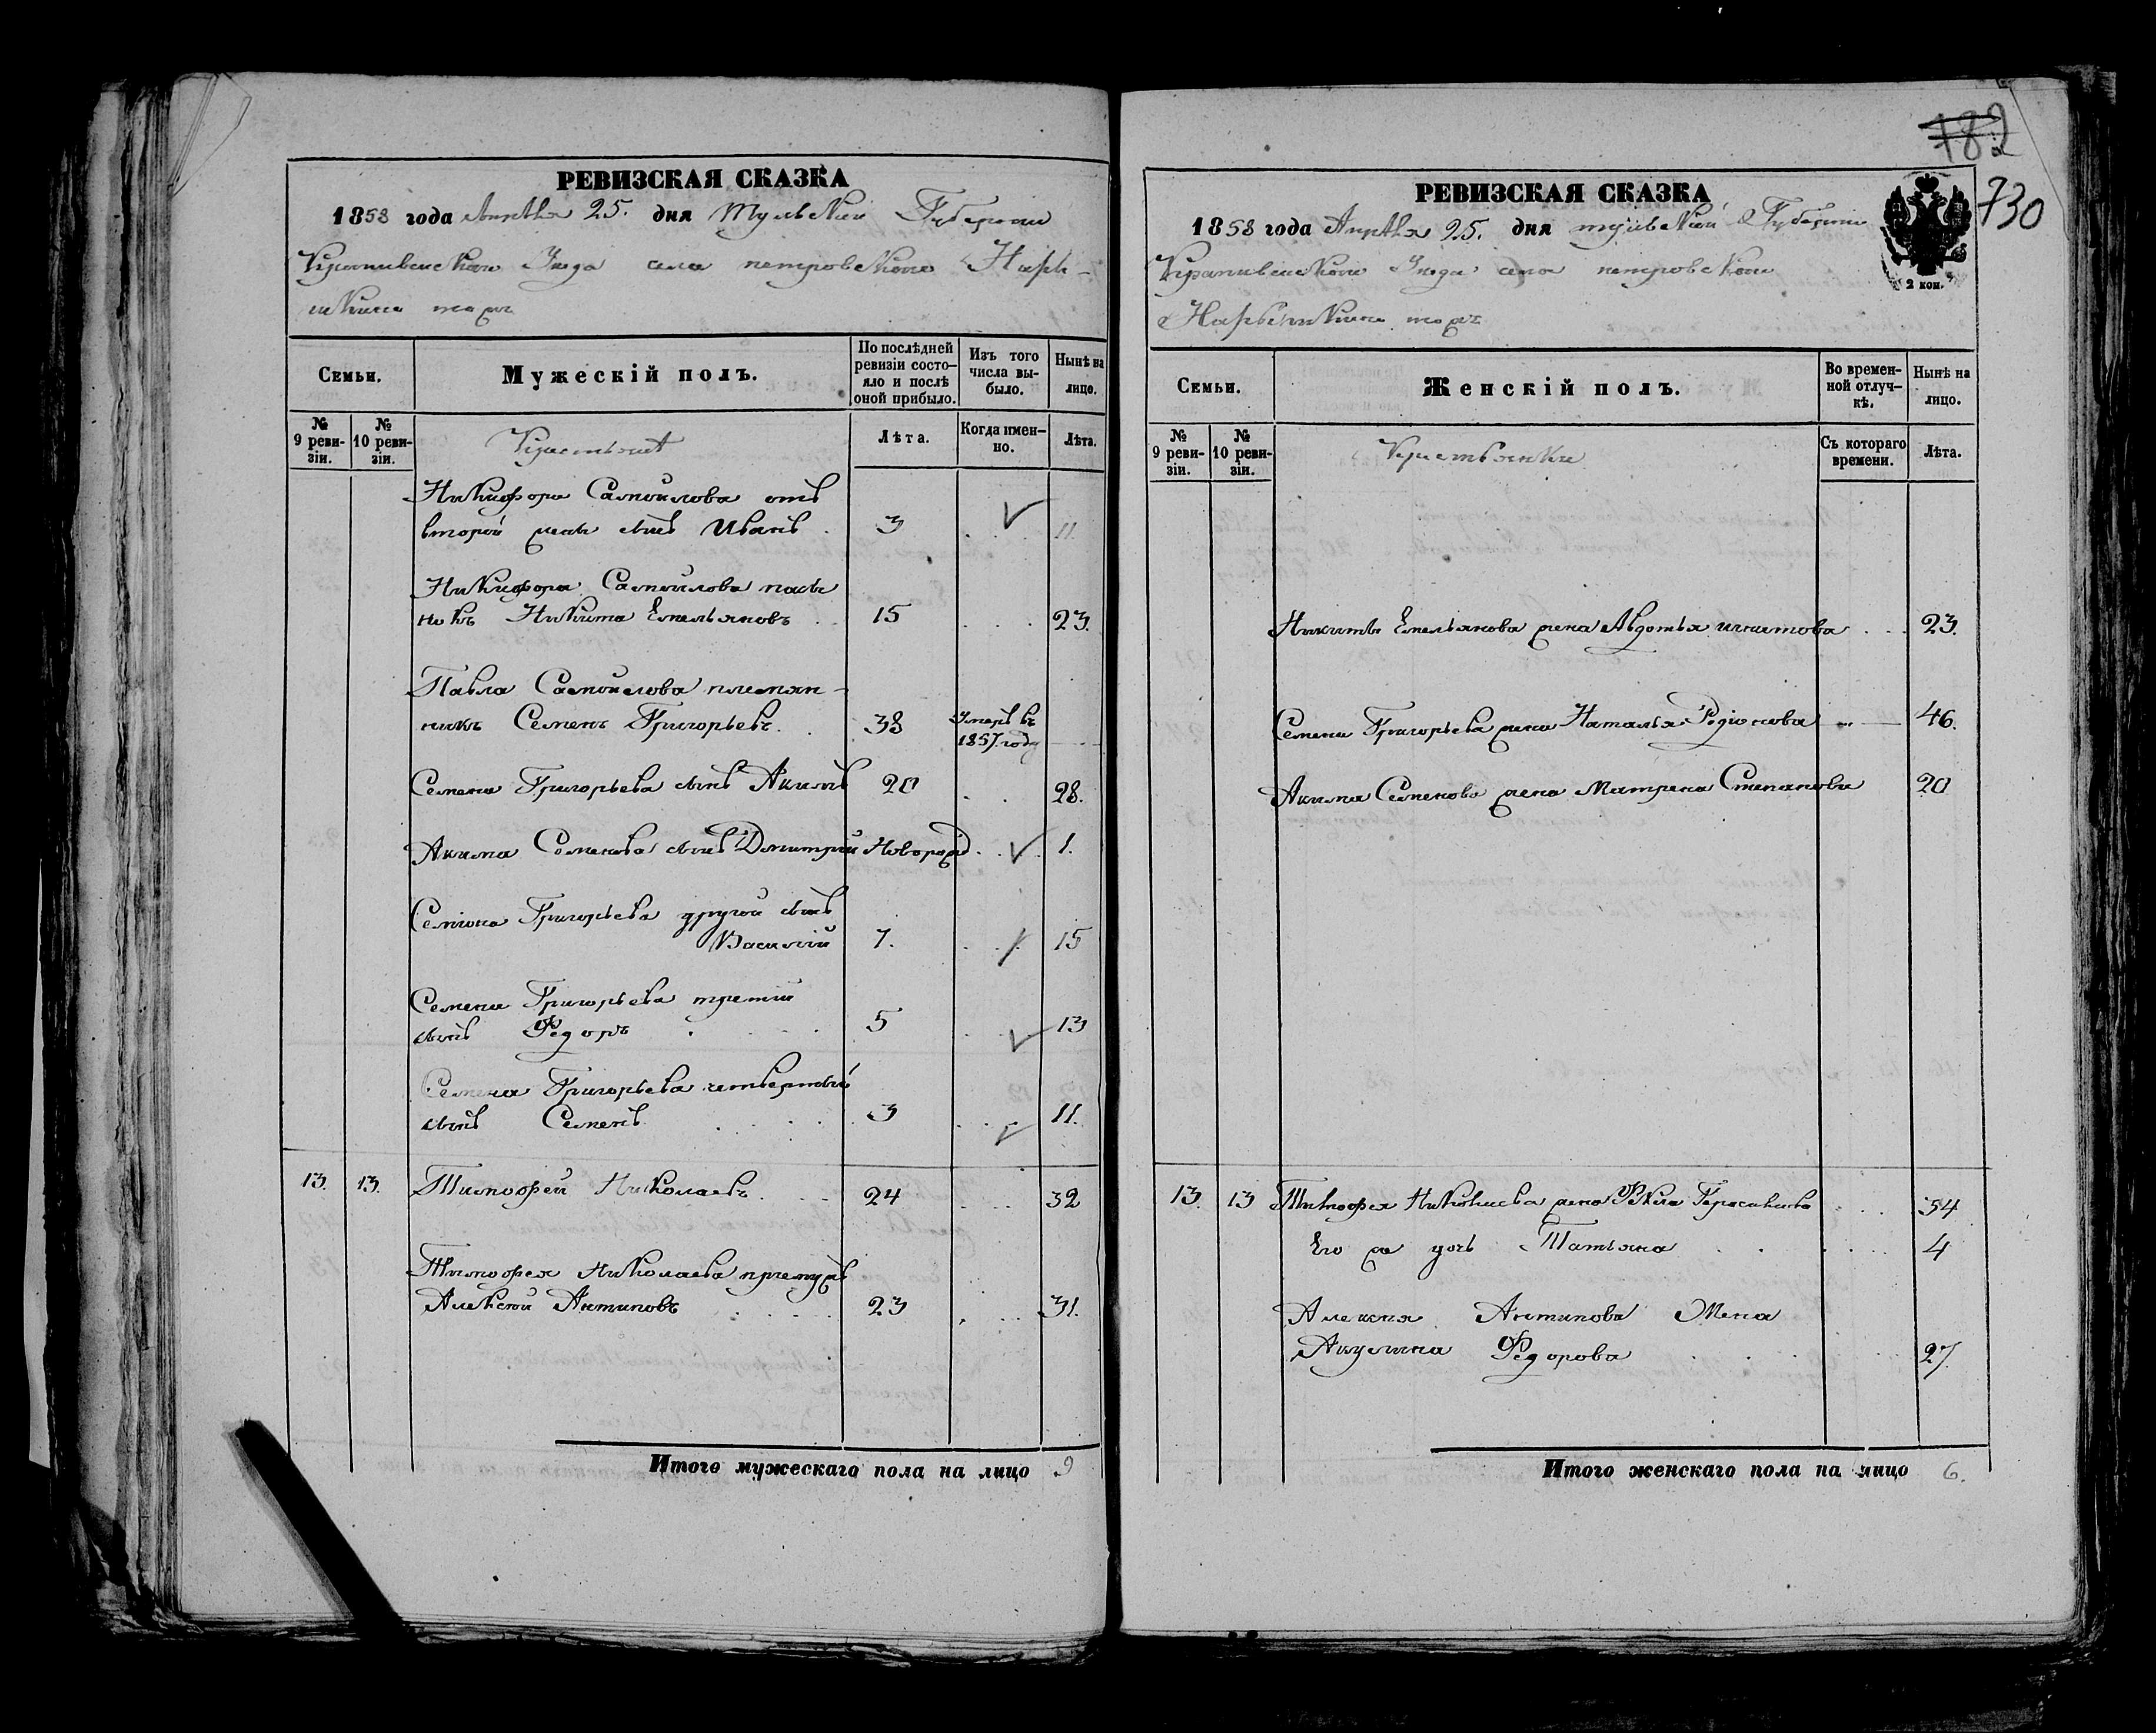 РЕВИЗСКАЯ СКАЗКА
1858 года Апрѣля 25. дня Тульской Губернии
Крапивенскаго Уезда села петровского Нары-
шкина тожъ
Семьи.
Мужескій полъ.
По послѣдней ревизіи состояло и послѣ оной прибыло.
Изъ того числа выбыло.
Нынѣ на лицо.
№ 9 ревизіи.
№ 10 ревизіи.
Крестьяне
Лѣта.
Когда именно.
Лѣта.
Никифора Самойлова отъ
второй жены сынъ Иванъ 3 11
Никифора Самойлова пасы
нокъ Никита Емельяновъ 15 23.
Павла Самойлова племян-
никъ Семенъ Григорьевъ 38 Умеръ въ 1857. году
Семена Григорьева сынъ Акимъ 20 28.
Акима Семенова сынъ Дмитрий Наворожд 1.
Семена Григорьева другой сынъ
Василий 7. 15
Семена Григорьева третий
сынъ Федоръ 5 13
Семена Григорьева четвертый
сынъ Семенъ 3 11.
13. 13. Тимофей Николаевъ 24 32
Тимофея Николаева
Алексей Антиповъ 23 31.
Итого мужескаго пола на лицо 9
782
730
РЕВИЗСКАЯ СКАЗКА
1858 года Апрѣля 25. дня тульской Губернии
Крапивенскаго Уезда села петровского
Нарышкина тожъ
2 коп.
Семьи.
Женскій полъ.
Во временной отлучкѣ.
Нынѣ на лицо.
№ 9 ревизіи.
№ 10 ревизіи.
Крестьянки
Съ котораго времени.
Лѣта.
Никиты Емельянова жена Авдотья игнатова 23.
Семена Григорьева жена Наталья Родионова 46.
Акима Семенова жена Матрена Степанова 20
13. 13 Тимофея Николаева жена Фекла Герасимова 34
Его же дочь Татьяна 4
Алексея Антипова Жена
Акулина Федорова 27
Итого женскаго пола на лицо 6.